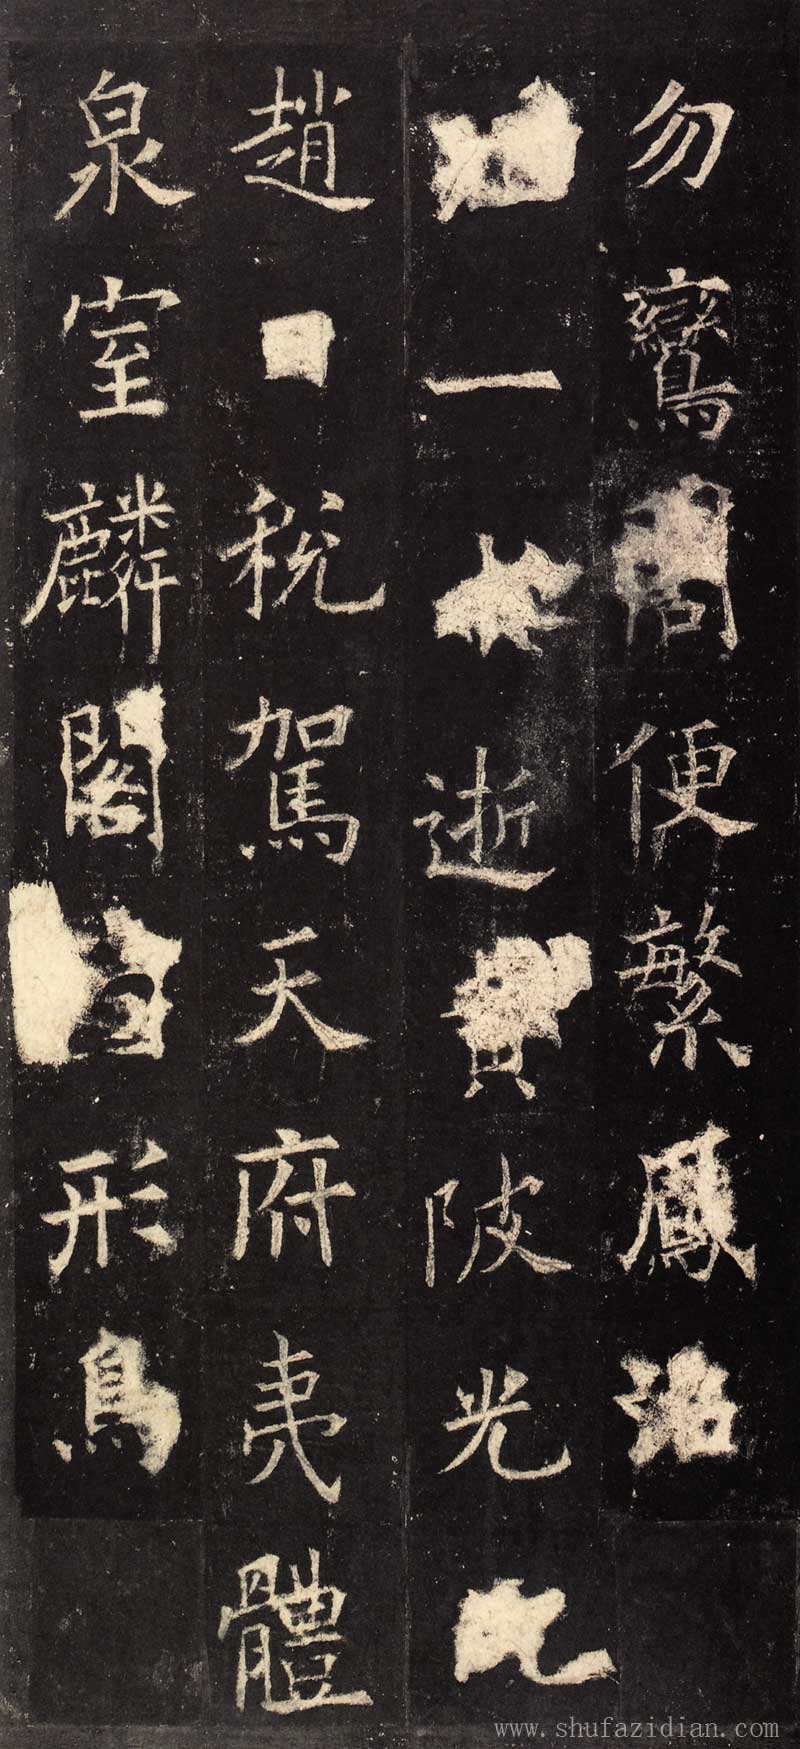 勿鸞閣便繁鳳沼
一逝黄陂光
趙税駕天府夷體
泉室麟閣形鳥
www.shufazidian.com